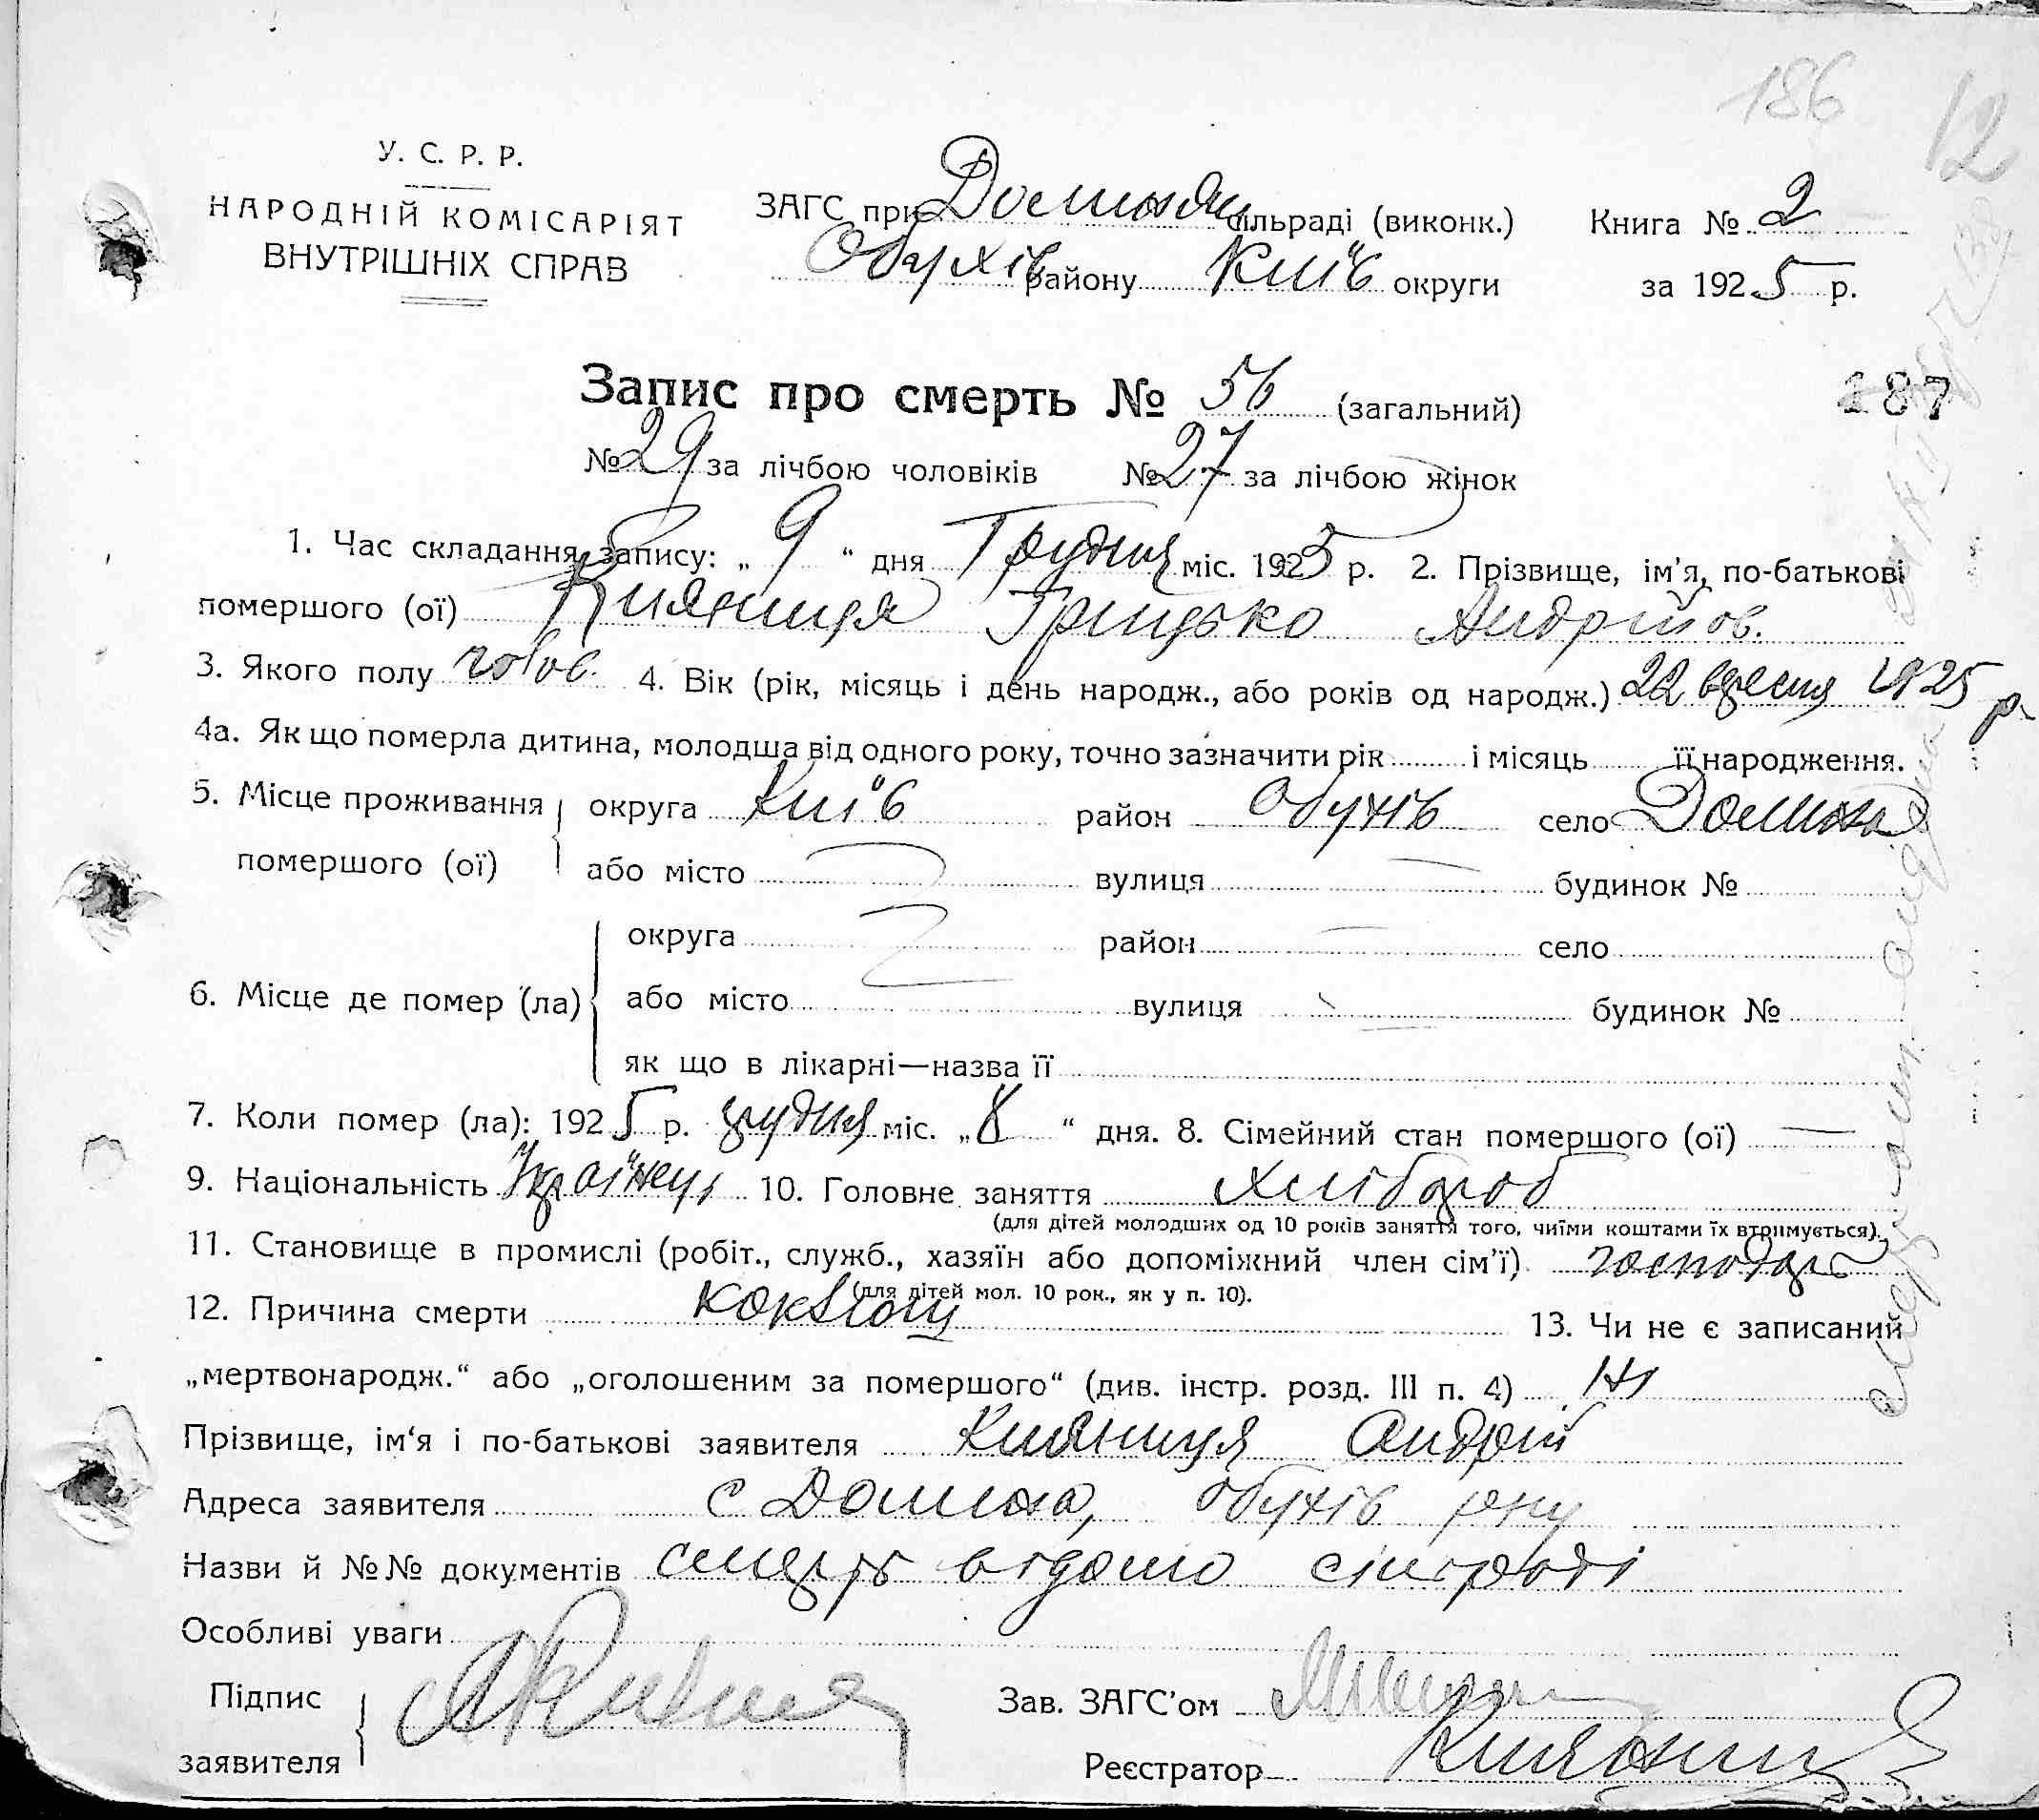 186
12
У. С. Р. Р.
НАРОДНІЙ КОМІСАРІЯТ
ВНУТРІШНІХ СПРАВ
ЗАГС при Долинян сільраді (виконк.)
Обухів району Київ округи
Книга № 2
за 1925 р.
Запис про смерть № 56 (загальний)
187
№ 29 за лічбою чоловіків № 27 за лічбою жінок
1. Час складання запису: „ 9 “ дня Грудня міс. 1925 р. 2. Прізвище, ім’я, по-батькові
помершого (ої) Кияниця Грицько Андрійов.
3. Якого полу чолов. 4. Вік (рік, місяць і день народж., або років од народж.) 22 вересня 1925 р
4а. Як що померла дитина, молодша від одного року, точно зазначити рік і місяць її народження.
5. Місце проживання помершого (ої) округа Київ район Обухів село Долина
або місто вулиця будинок №
6. Місце де помер (ла) округа район село
або місто вулиця будинок №
як що в лікарні—назва її
7. Коли помер (ла): 1925 р. грудня міс. „ 8 “ дня. 8. Сімейний стан помершого (ої) —
9. Національність Українец 10. Головне заняття хлібороб
(для дітей молодших од 10 років заняття того, чиїми коштами їх втримується).
11. Становище в промислі (робіт., служб., хазяїн або допоміжний член сім’ї) господарь
(для дітей мол. 10 рок., як у п. 10).
12. Причина смерти коклюш 13. Чи не є записаний
„мертвонародж.“ або „оголошеним за помершого“ (див. інстр. розд. III п. 4) Ні
Прізвище, ім‘я і по-батькові заявителя Кияниця Андрій
Адреса заявителя с Долина, Обухів р-ну
Назви й №№ документів смерть відомо сільраді
Особливі уваги
Підпис заявителя
Зав. ЗАГС’ом
Реєстратор Кияниця